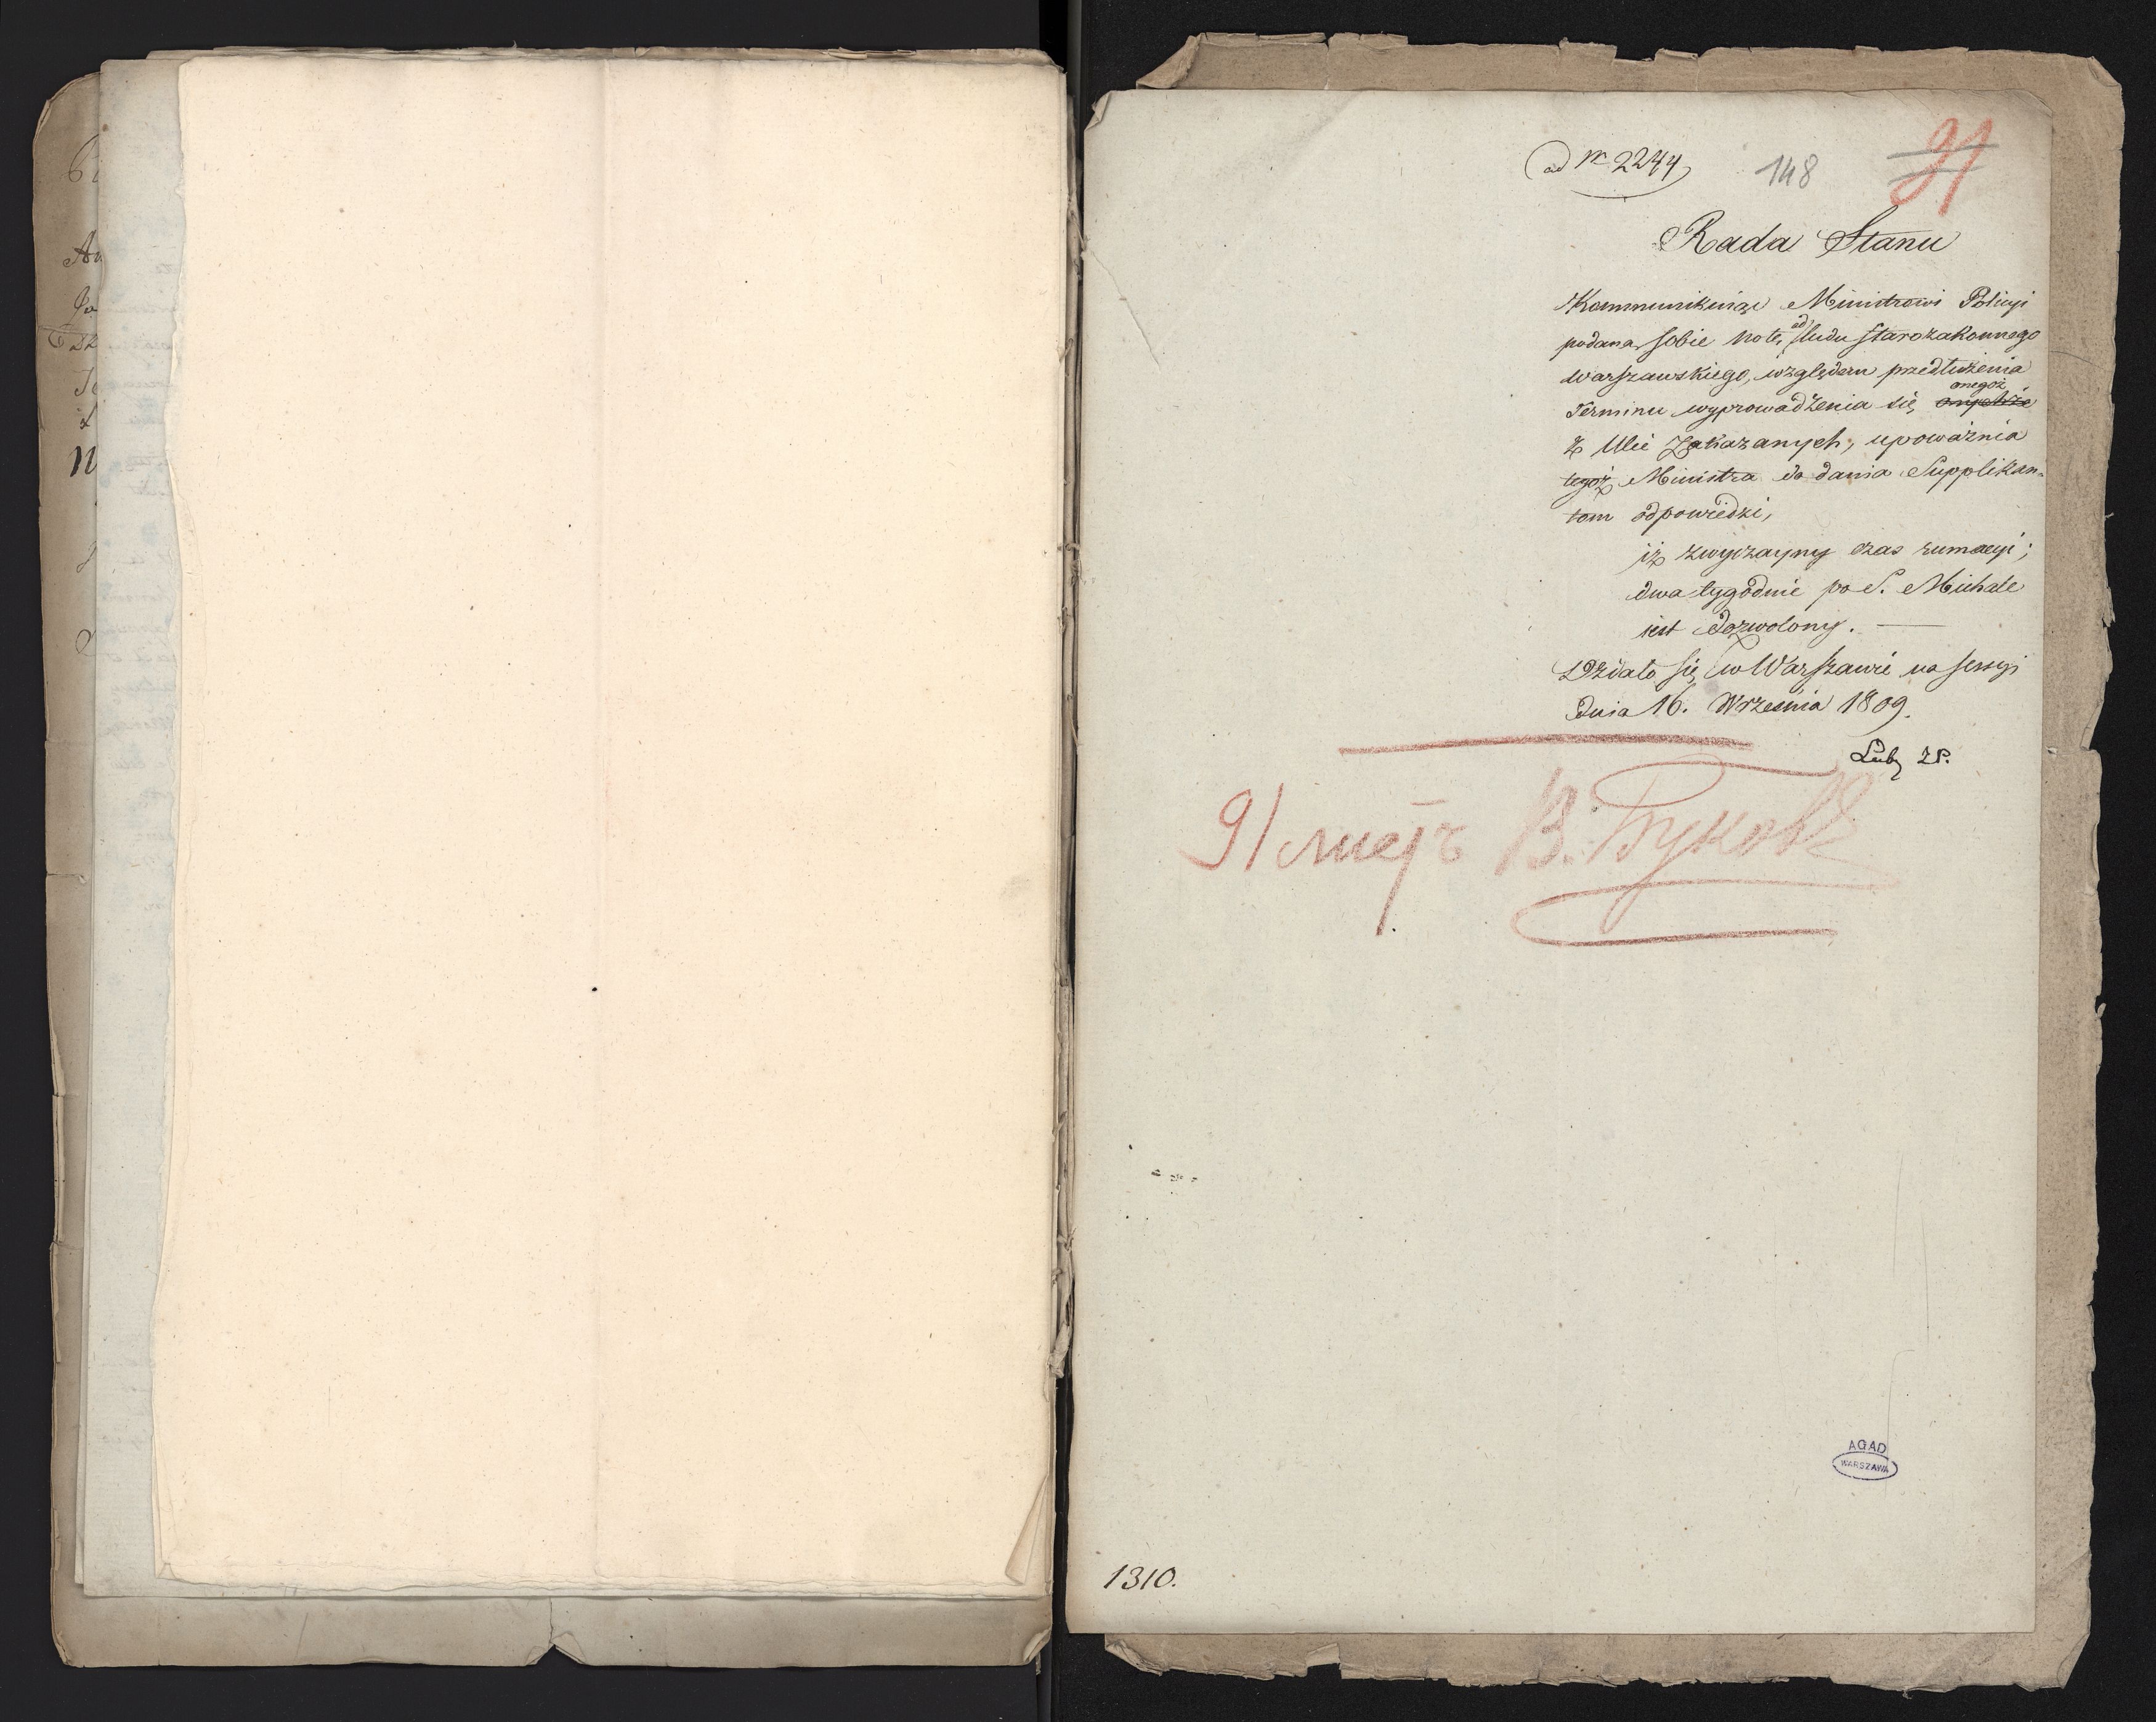 ad Nr 2244
148
91
Rada Stanu
Kommunikuiąc Ministrowi Policyi
podaną sobie notę od ludu starozakonnego
Warszawskiego, względem przedłużenia
Terminu wyprowadzenia się onegoż
z Ulic zakazanych, upoważnia
tegoż Ministra do dania Supplikan-
tom odpowiedzi,
iż zwyczayny czas rumacyi;
dwa tygodnie po S. Michale
iest dozwolony.
Działo się w Warszawie na sessyi
dnia 16. Września 1809.
Lub
91 листъ В. Буковъ
AGAD
WARSZAWA
1310.